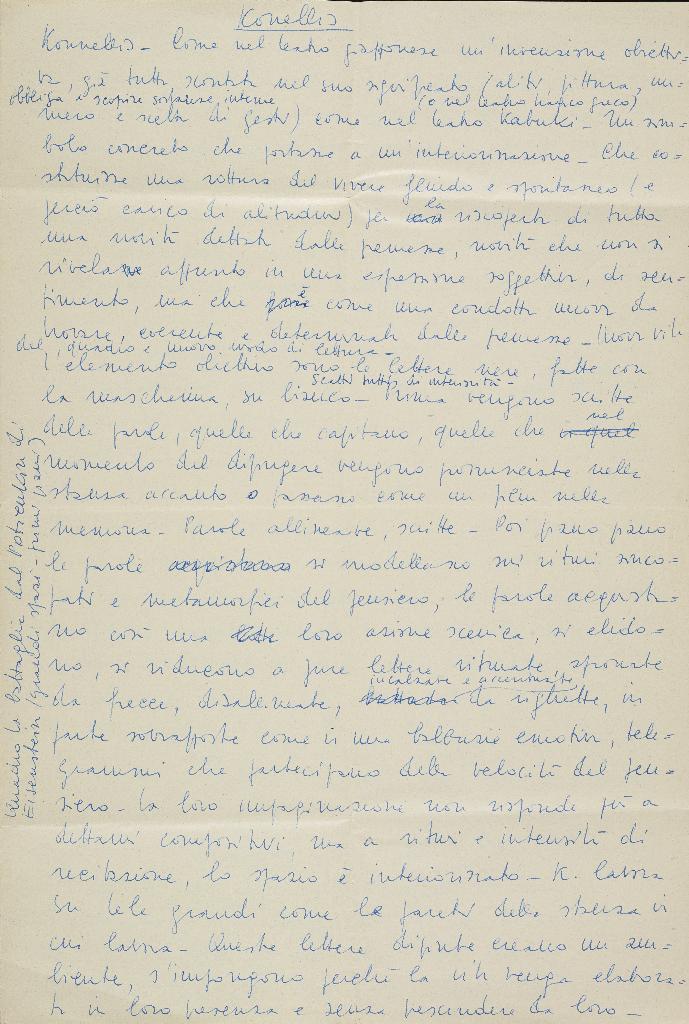 Konellis
Kounellis - Come nel teatro giapponese un'invenzione obietti=
va, già tutta scontata nel suo significato (abiti, pittura, nu-
obbliga a scoprire sorprese interne (e nel teatro tragico greco)
mero e scelta di gesti) come nel teatro Kabuki - Un sim=
bolo concreto che portasse a un'interiorizzazione - Che co=
stituisse una rottura del vivere fluido e spontaneo (e
perciò carico di abitudini) per la riscoperta di tutta
una novità dettata dalle premesse, novità che non si
rivelasse appunto in una espressione soggettiva, di sen=
timento, ma che è come una condotta nuova da
trovare, coerente e determinata dalle premesse - (nuova vita
del quadro e nuovo modo di lettura -
L'elemento obiettivo sono le lettere nere, fatte con
Scatti tutti di intensità -
la mascherina, su bianco - Prima vengono scritte
delle parole, quelle che capitano, quelle che nel
momento del dipingere vengono pronunciate nella
stanza accanto o passano come un film nella
memoria - Parole allineate, scritte - Poi piano piano
le parole si modellano sui ritmi sinco=
pati e metamorfici del pensiero, le parole acquista=
no così una loro azione scenica, si elido=
no, si riducono a pure lettere ritmate, spronate
incalzate e accentuate
da frecce, disallineate, da righette, in
parte sovrapposte come in una balbuzie emotiva, tele=
grammi che partecipano della velocità del pen=
siero - La loro impaginazione non risponde più a
dettami compositivi, ma a ritmi e intensità di
recitazione, lo spazio è interiorizzato - K. lavora
su tele grandi come le pareti della stanza in
cui lavora - Queste lettere dipinte creano un am=
biente, s'impongono perché la vita venga elabora=
ta in loro presenza e senza prescindere da loro -
la battaglia dal Potemkin di
Eisenstein (grandi spazi - primi piani)